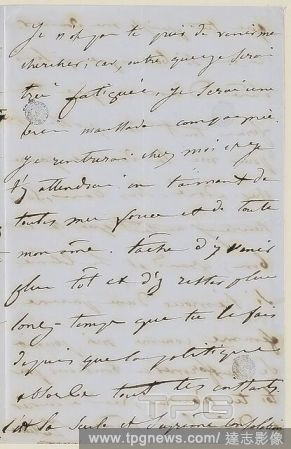 Je n'ose pas te prier de venir me
chercher, car, outre que je serai
très fatiguée, je serai une
bien maussade compagnie.
Je rentrerai chez moi et je
t'y attendrai en t'aimant de
toutes mes forces et de toute
mon âme. tâche d'y venir
plus tôt et d'y rester plus
long-temps que tu le fais
depuis que la politique
absorbe tout tes instants
c'est la seule et suprême consolation
TPG
www.tpgnews.com / 達志影像